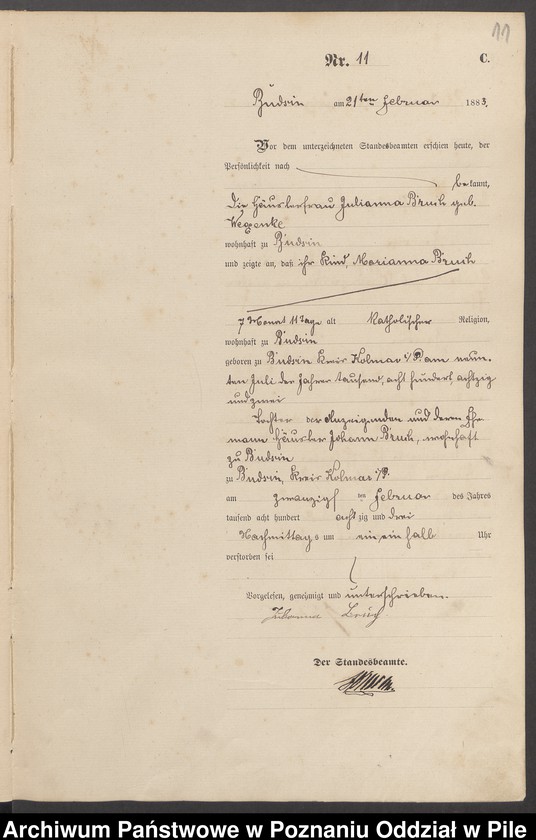 11
Nr. 11 C.
Budsin am 21ten Februar 1883.
Vor dem unterzeichneten Standesbeamten erschien heute, der
Persönlichkeit nach
bekannt,
die Häuslerfrau Julianna Bruch geb.
wohnhaft zu Budsin
und zeigte an, daß ihr Kind, Marianna Bruch
7 Monat 11 Tage alt Katholischer Religion,
wohnhaft zu Budsin
geboren zu Budsin Kreis Kolmar i/P. am neun-
ten Juli des Jahres tausend, acht hundert, achtzig
und zwei
Tochter der Anzeigenden und deren Ehe-
mann Häusler Johann Bruch, wohnhaft
zu Budsin
zu Budsin, Kreis Kolmar i/P.
am zwanzigsten Februar des Jahres
tausend acht hundert achtzig und drei
Nachmittags um ein ein halb Uhr
verstorben sei
Vorgelesen, genehmigt und unterschrieben.
Julianna Bruch
Der Standesbeamte.
Archiwum Państwowe w Poznaniu Oddział w Pile